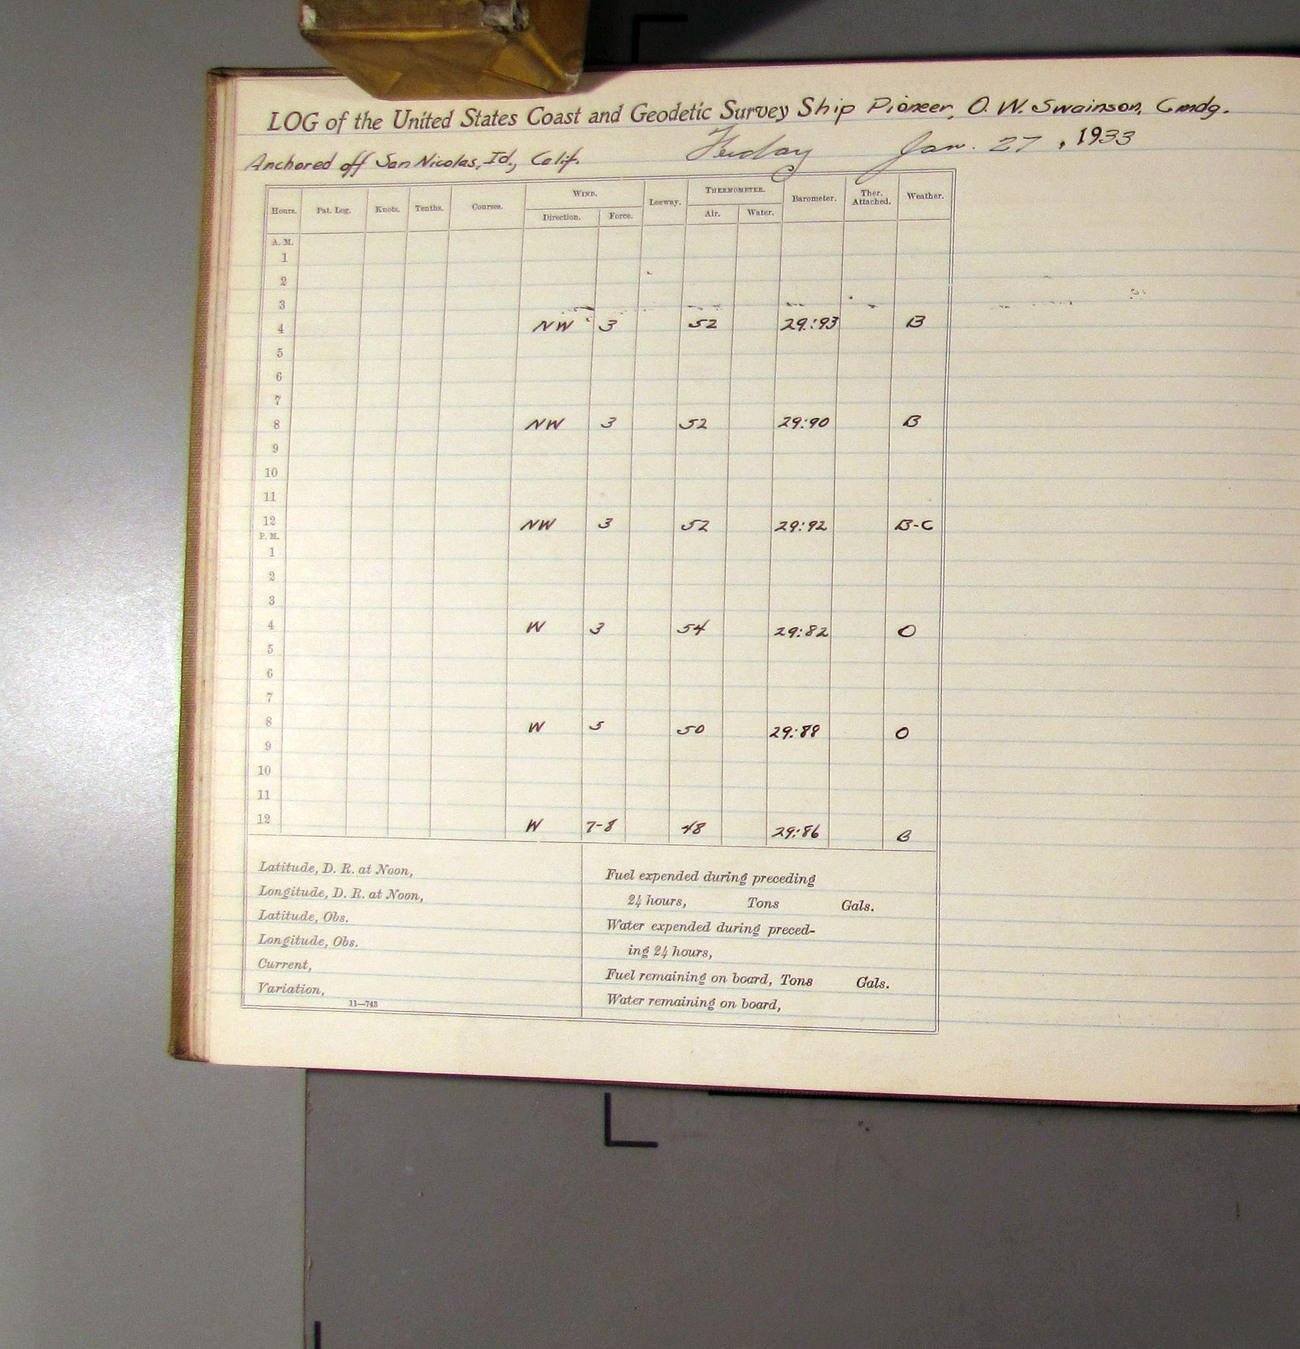 LOG of the United States Coast and Geodetic Survey Ship Pioneer, O. W. Swainson, Cmdg.
Friday Jan. 27, 1933
Anchored off San Nicolas, Id., Calif.
Hours. Pat. Log. Knots. Tenths. Courses. WIND. Leeway. THERMOMETER. Barometer. Ther. Attached. Weather.
Direction. Force. Air. Water.
A. M.
1
2
3
4 NW 3 52 29:93 B
5
6
7
8 NW 3 52 29:90 B
9
10
11
12 NW 3 52 29:92 B-C
P. M.
1
2
3
4 W 3 54 29:82 O
5
6
7
8 W 5 50 29:88 O
9
10
11
12 W 7-8 48 29:86 B
Latitude, D. R. at Noon,
Longitude, D. R. at Noon,
Latitude, Obs.
Longitude, Obs.
Current,
Variation,
11—743
Fuel expended during preceding
24 hours, Tons Gals.
Water expended during preced-
ing 24 hours,
Fuel remaining on board, Tons Gals.
Water remaining on board,